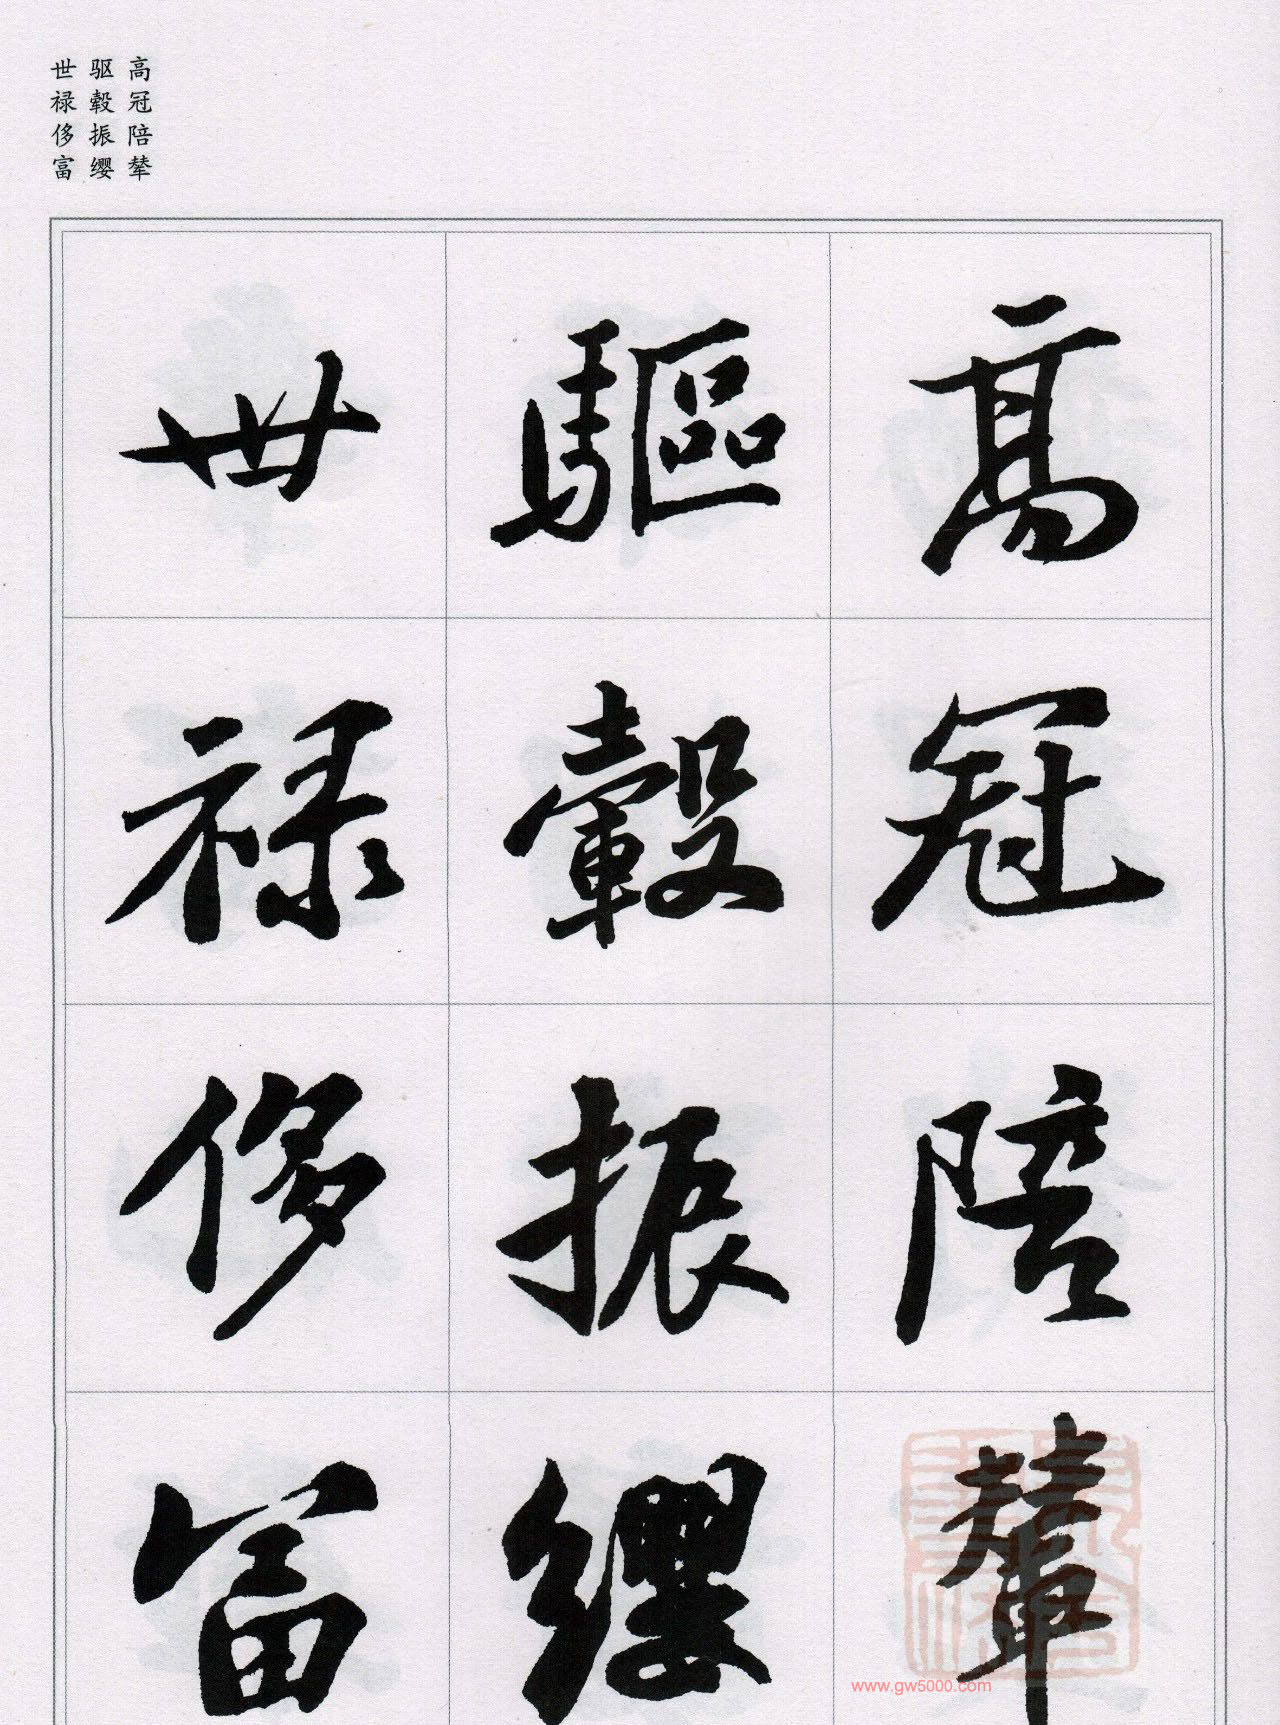 高冠陪辇
驱毂振缨
世禄侈富
高冠陪輦
驅轂振纓
世禄侈富
www.gw5000.com